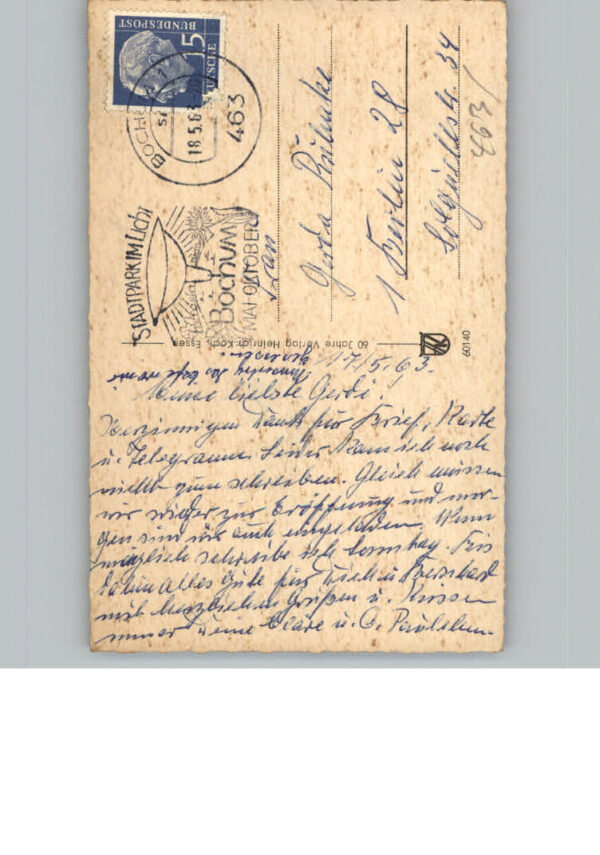 DEUTSCHE
BUNDESPOST
15
BOCHUM 1
18.5.63
463
STADTPARK IM Licht
Bochum
MAI OKTOBER
Frau
Gerda
1 Berlin 28
34
463
60 Jahre Verlag Heinrich Koch, Essen
60140
17/5.63
Meine liebste Gerdi!
Herzinnigen Dank für Brief, Karte
u. Telegramm. Leider kam ich noch
nicht zum schreiben. Gleich müssen
wir wieder zur Eröffnung und mor-
gen sind wir auch eingeladen. Wenn
möglich schreibe ich Sonntag. Bis
dahin alles Gute für Dich u. Bernhard
mit herzlichen Grüßen u. Küssen
immer Deine Cläre u.